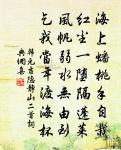 海上蟠桃手自栽
紅塵一墮隔蓬萊
風帆弱水無由到
乞我當年渡海杯
韓元吉隱靜山二首詞
典網集